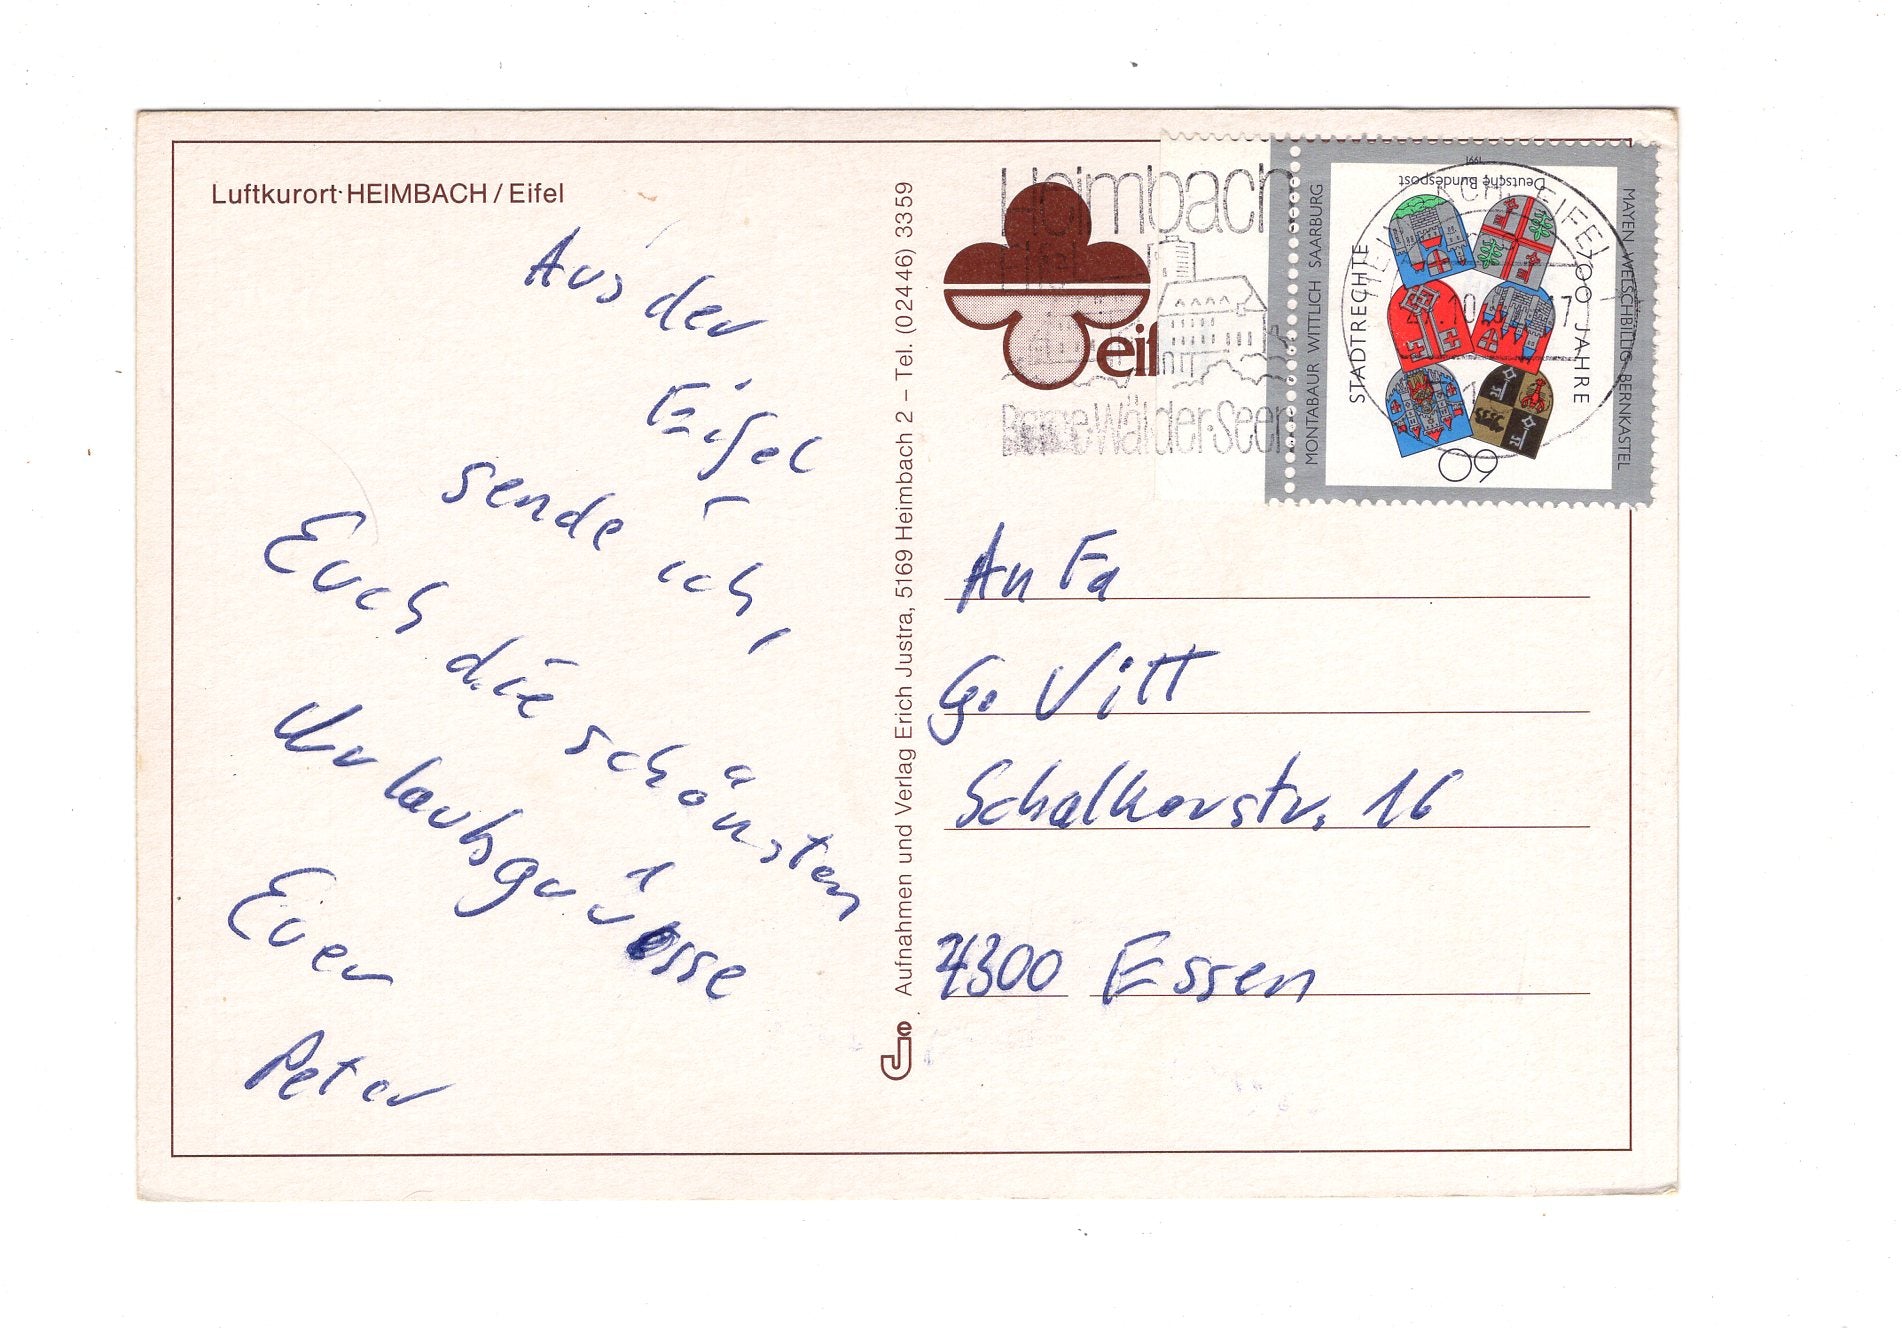 Luftkurort HEIMBACH / Eifel
Aus der
Eifel
sende ich,
Euch die schönsten
Urlaubsgrüsse
Euer
Peter
Aufnahmen und Verlag Erich Justra, 5169 Heimbach 2 – Tel. (02446) 3359
Heimbach
Eifel
eif
Berge·Wälder·Seen
MONTABAUR WITTLICH SAARBURG
STADTRECHTE
700 JAHRE
MAYEN WELSCHBILLIG BERNKASTEL
Deutsche Bundespost
1991
60
An Fa
Vitt
Schalkerstr. 16
4300 Essen